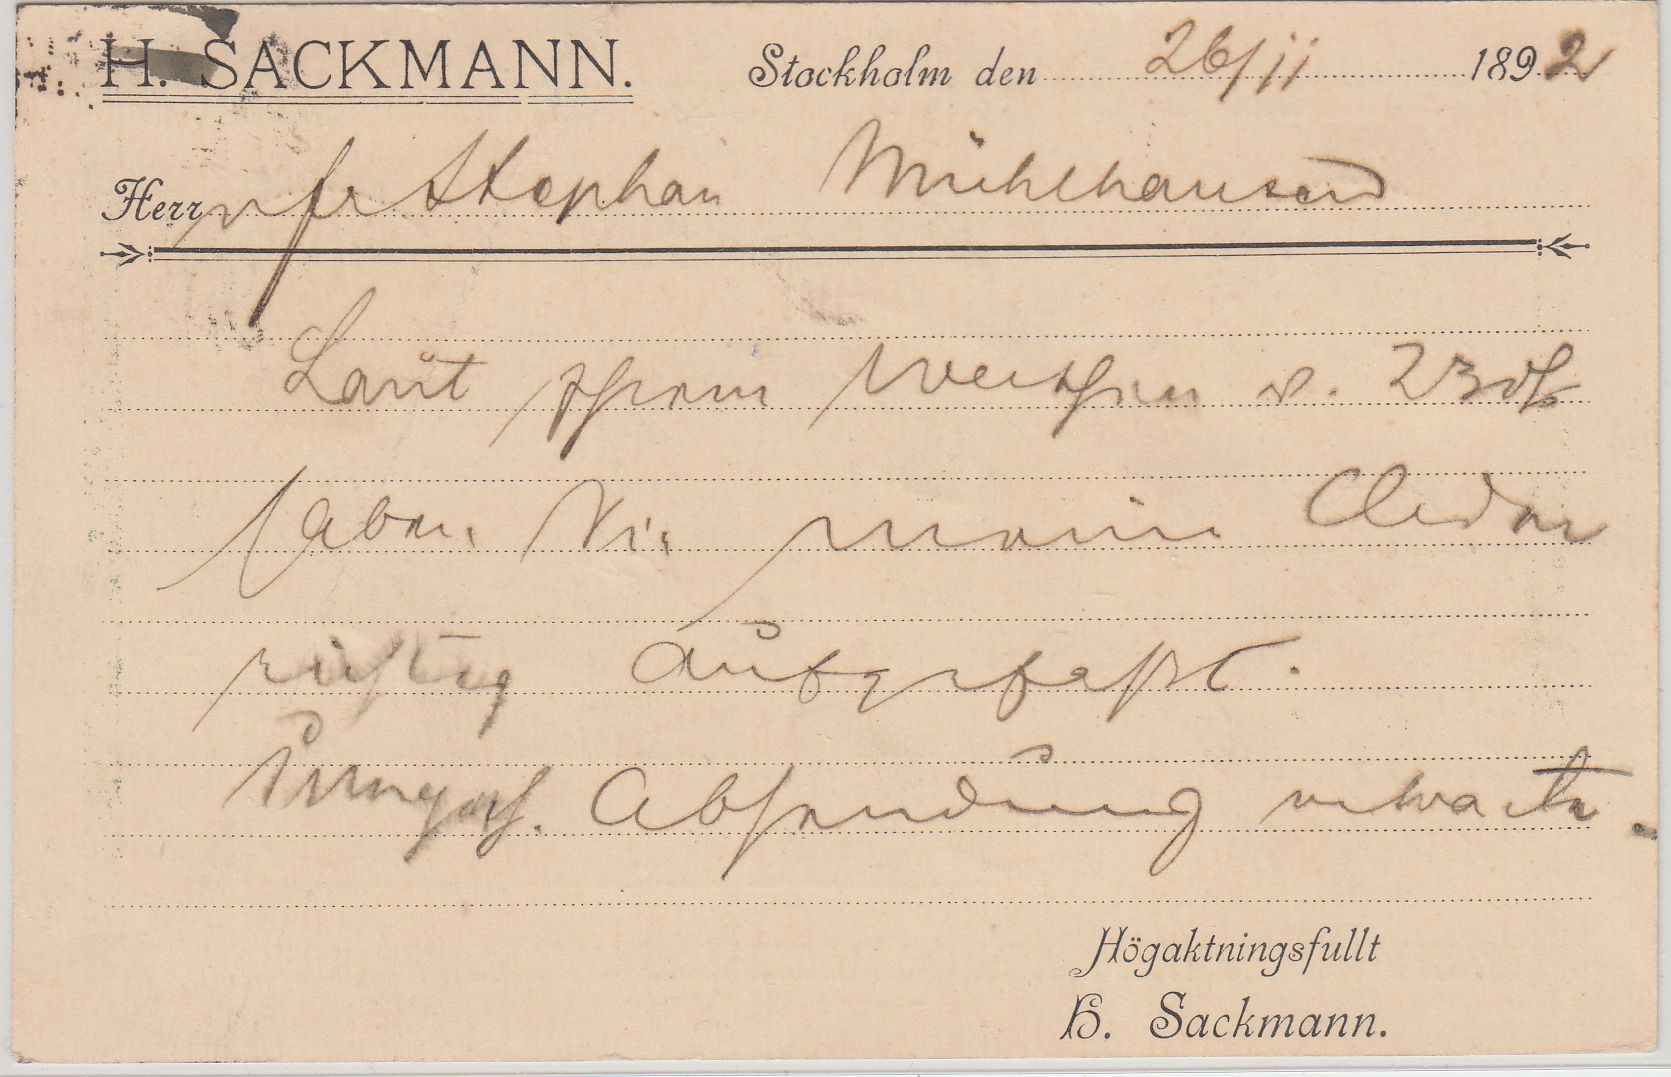 H. SACKMANN. Stockholm den 26/11 1892
Herrn Fr Stephan Mühlhausen
Laut Ihrem Werthen v. 23 d/
haben Sie meine Order
richtig aufgefaßt.
Umgeh. Absendung erwarte.
Högaktningsfullt
H. Sackmann.